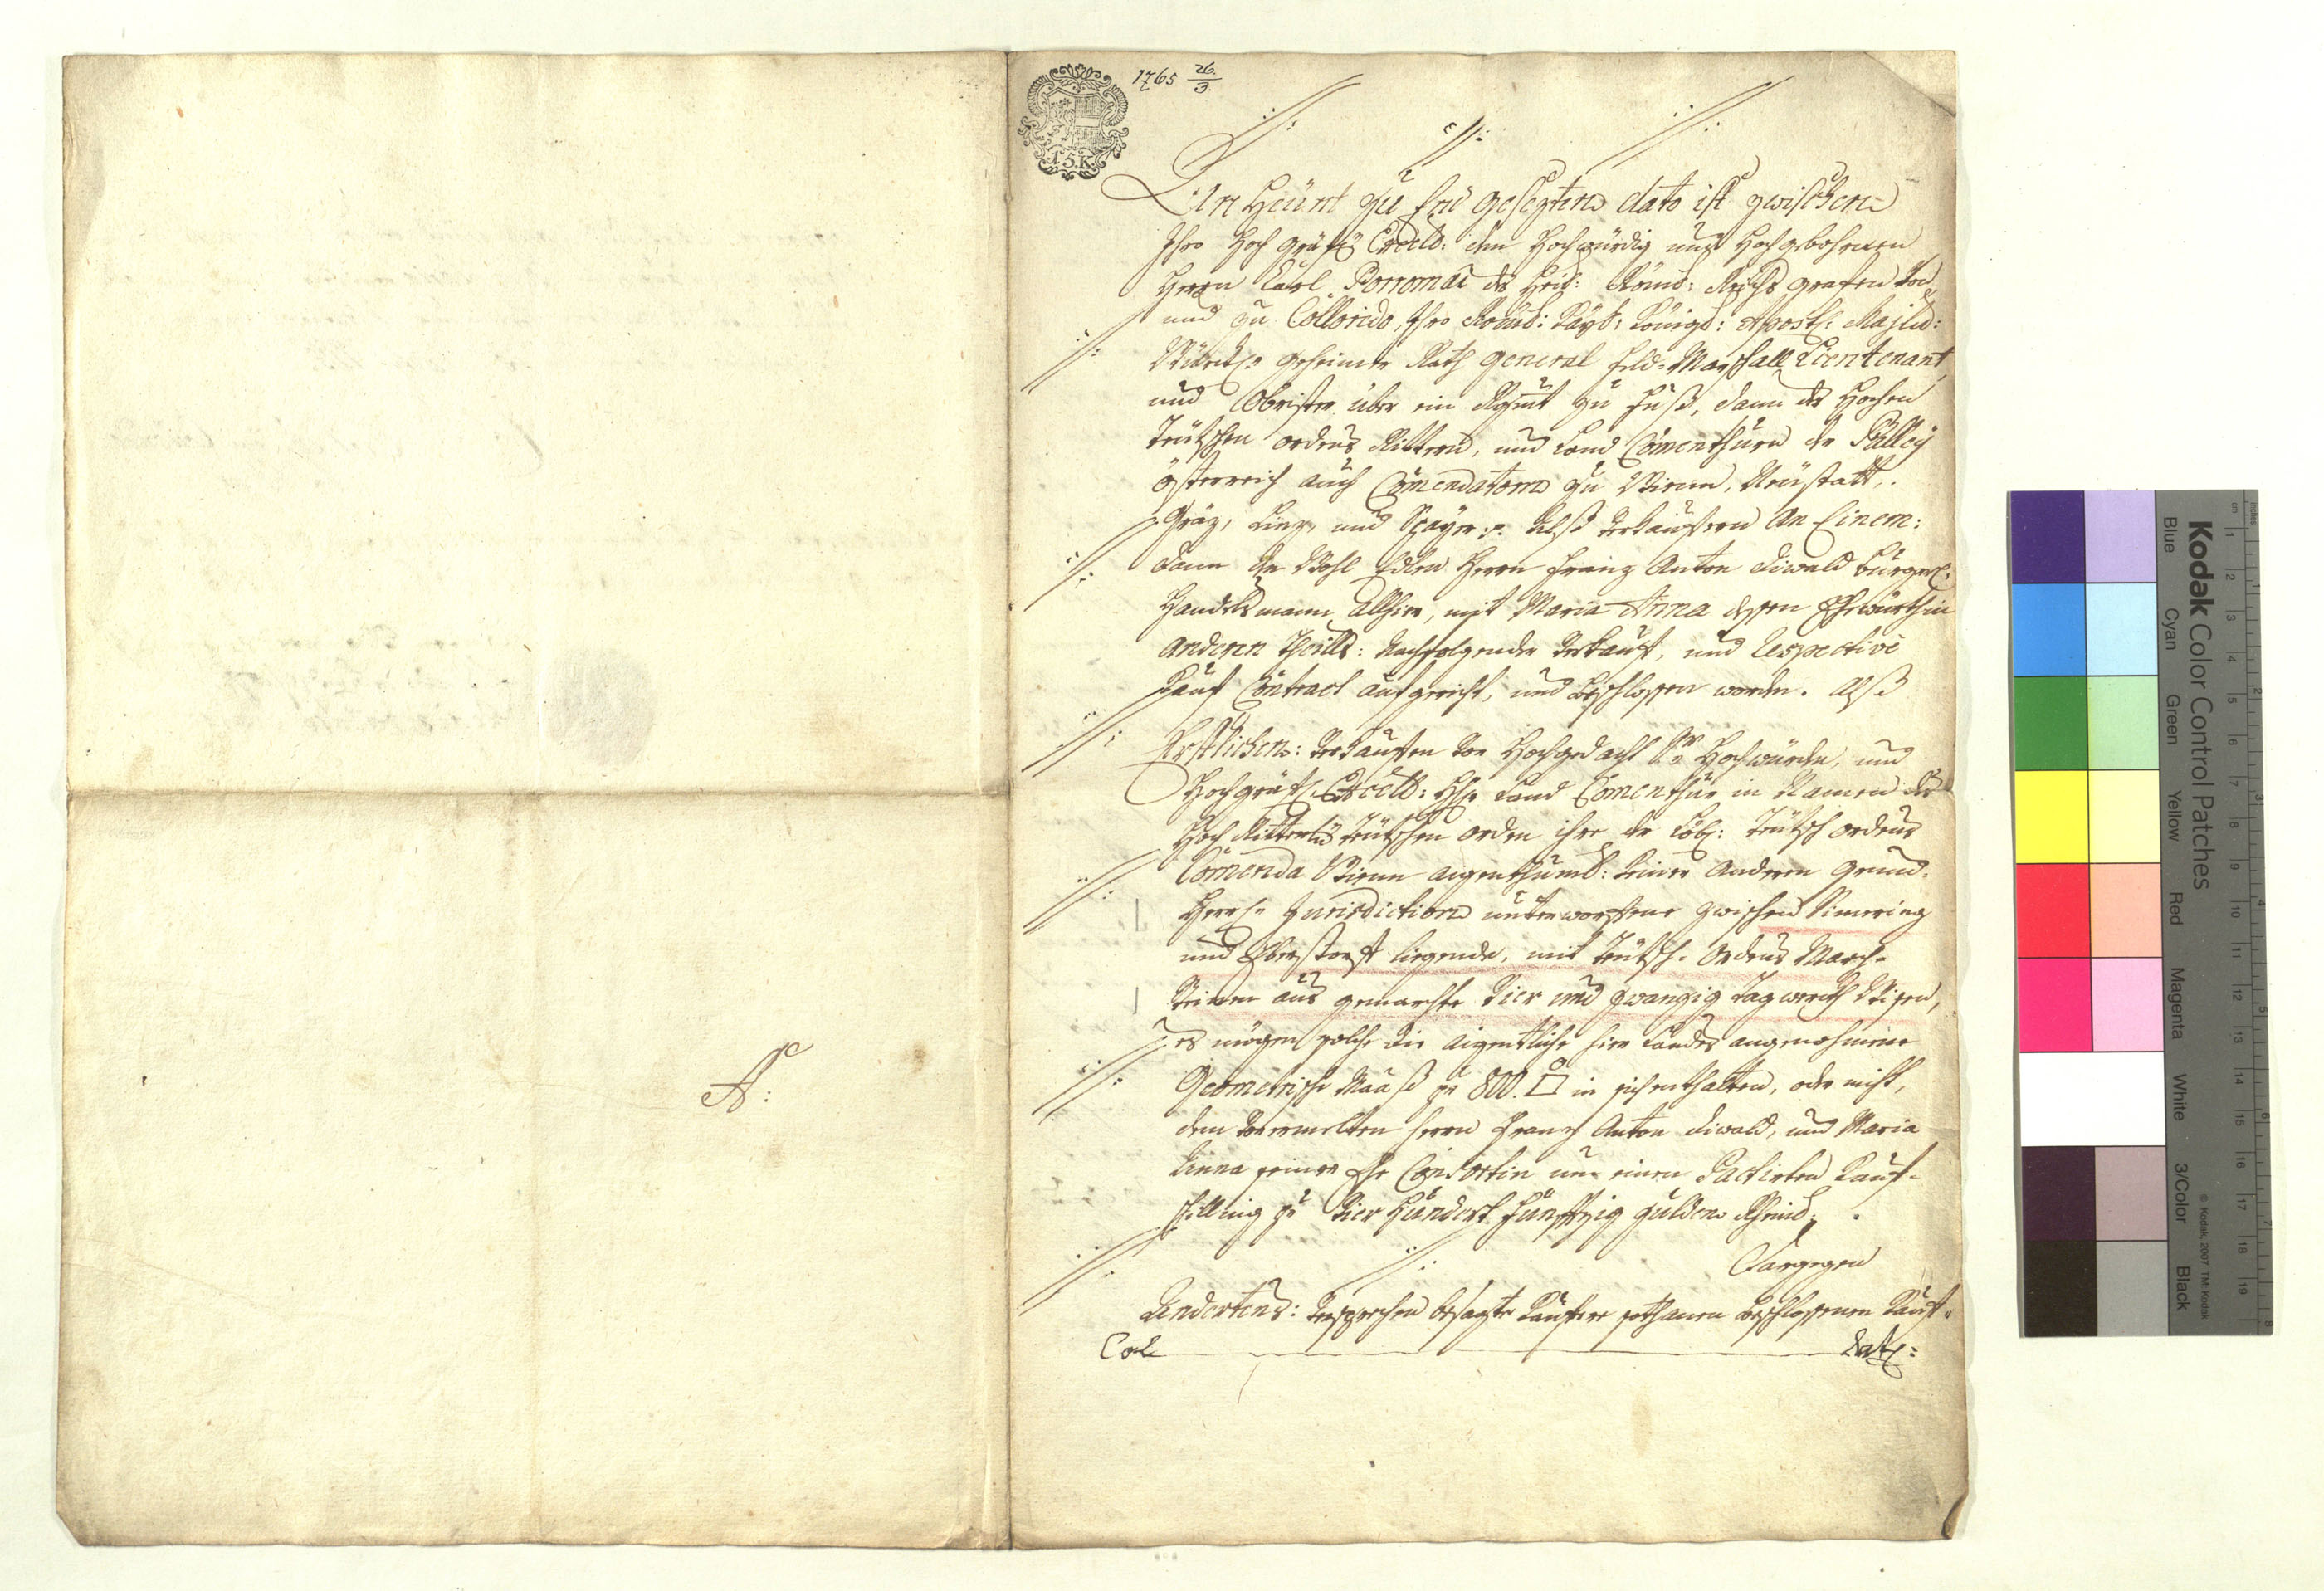 1765 26/3.
15.K.
An Heünt zu End gesezten dato ist zwischen
Ihro Hoch Gräfl: Excell: dem Hochwürdig und Hochgebohrnen
Herrn Carl Borromæ des Heil: Römis: Reichs Grafen von
und zu Colloredo, Ihro Römis: Kays: Königl: Apostl: Majtt:
Würckl: geheimer Rath General Feld-Marschall Lieutenant,
und Obrister über ein Regimt zu Fuß, dann des Hochen
Teütschen Ordens Rittern, und Land Comenthurn der Balley
Österreich auch Comendatorn zu Wienn, Neüstatt,
Gräz, Linz, und Speyer. Alß Verkauffern An Einem:
Dann der Wohl Edlen Herrn Franz Anton Diwald bürgerl:
Handelsmann Allhier, mit Maria Anna dessen Ehewürthin
Anderen Theills: Nachfolgender Verkauff, und Respective
Kauff Contract aufgericht, und beschlossen worden. Alß
Erstlichen: Verkauffen vor Hochgedacht Sr Hochwürden, und
Hochgräfl: Excell: H: Land Comenthur in Namen des
Hoch Ritterl: Teütschen Orden ihre der Löbl: Teütsch Ordens
Comenda Wienn aigenthüml: keiner Anderen Grund-
Herrl: Jurisdiction unterworffene zwischen Simering
und Eberstorff liegende, mit Teütsch-Ordens March-
Steinen aus gemarchte Vier und zwanzig Tagwerch Wisen,
es mögen solche die aigentliche hier Landes angenohmene
Geometrische Mauß pr 800. □ in sich enthalten, oder nicht,
dem Vorermelten Herrn Franz Anton Diwald, und Maria
Anna seiner Ehe Consortin um einen Pactirten Kauf-
schilling pr Vier Hundert Fünffzig Gulden Rheinl:
Dargegen
Andertens: Versprechen besagte Kauffere sothanen beschlossenen Kauff-
A: